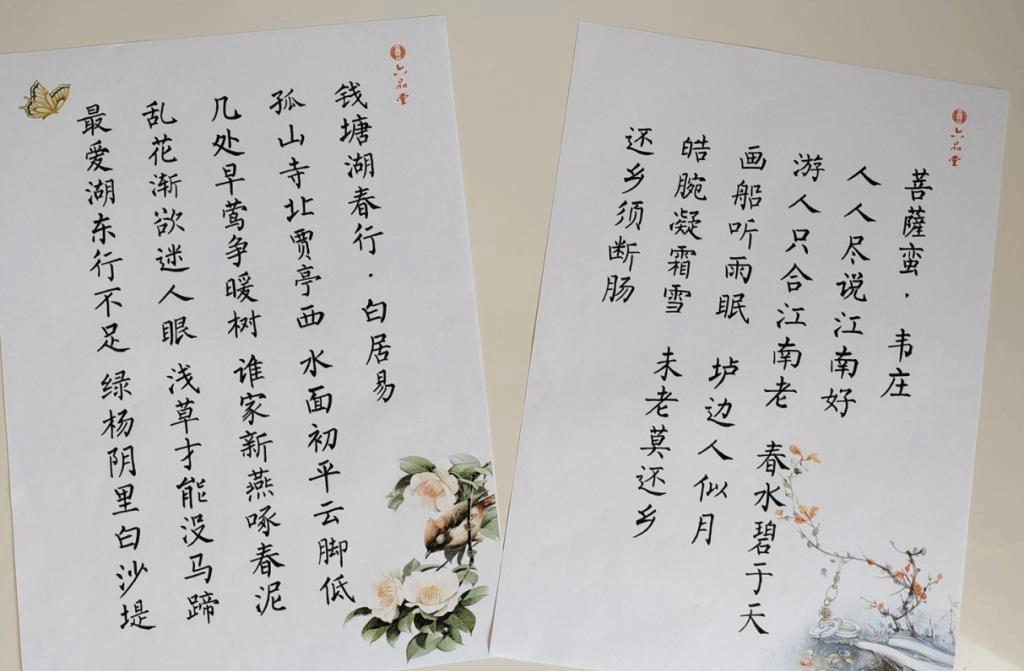 六品堂
钱塘湖春行·白居易
孤山寺北贾亭西 水面初平云脚低
几处早莺争暖树 谁家新燕啄春泥
乱花渐欲迷人眼 浅草才能没马蹄
最爱湖东行不足 绿杨阴里白沙堤
六品堂
菩薩蛮·韦庄
人人尽说江南好
游人只合江南老 春水碧于天
画船听雨眠 垆边人似月
皓腕凝霜雪 未老莫还乡
还乡须断肠